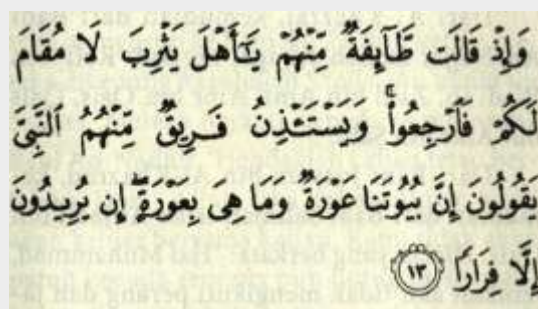 وَإِذْ قَالَت طَّآئِفَةٌ مِّنْهُمْ يَـٰٓأَهْلَ يَثْرِبَ لَا مُقَامَ
لَكُمْ فَٱرْجِعُوا۟ ۚ وَيَسْتَـْٔذِنُ فَرِيقٌ مِّنْهُمُ ٱلنَّبِىَّ
يَقُولُونَ إِنَّ بُيُوتَنَا عَوْرَةٌ وَمَا هِىَ بِعَوْرَةٍ ۖ إِن يُرِيدُونَ
إِلَّا فِرَارًا ١٣